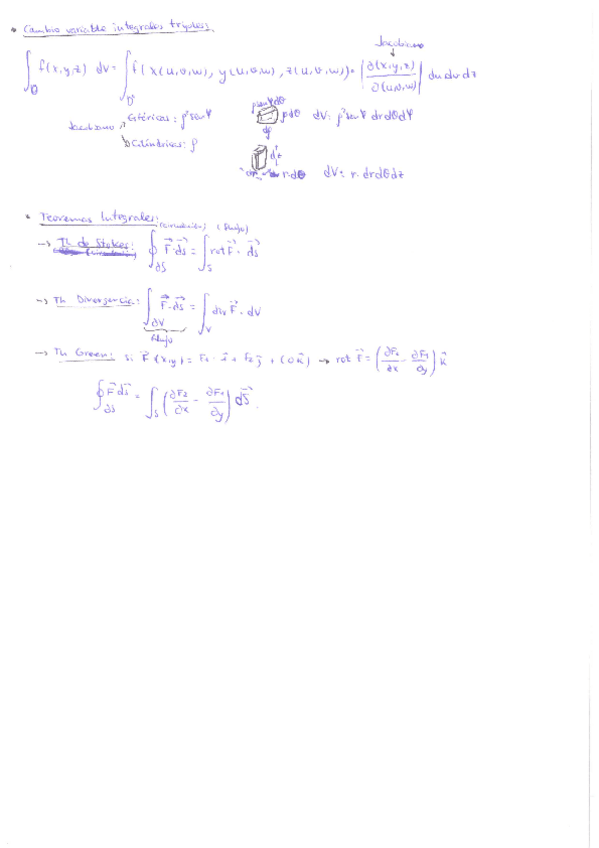 * Cambio variable integrales triples:
Jacobiano
∫_Q f(x,y,z) dV = ∫_Q' f(x(u,v,w), y(u,v,w), z(u,v,w)) · |∂(x,y,z)/∂(u,v,w)| du dv dz
Jacobiano → Esféricas: ρ² sen φ
→ Cilíndricas: ρ
ρ sen φ dθ
ρ dφ
dρ
dV: ρ² sen φ dr dθ dφ
dz
r·dθ
dV: r·dr dθ dz
* Teoremas Integrales:
(circulación) (flujo)
→ Th de Stokes: ∮_∂S F·ds = ∫_S rot F · ds
→ Th Divergencia: ∫_∂V F·ds = ∫_V div F · dV
flujo
→ Th Green: si F(x,y) = F₁·i + F₂ j + (0k) → rot F = (∂F₂/∂x − ∂F₁/∂y) k
∮_∂S F ds = ∫_S (∂F₂/∂x − ∂F₁/∂y) dS.